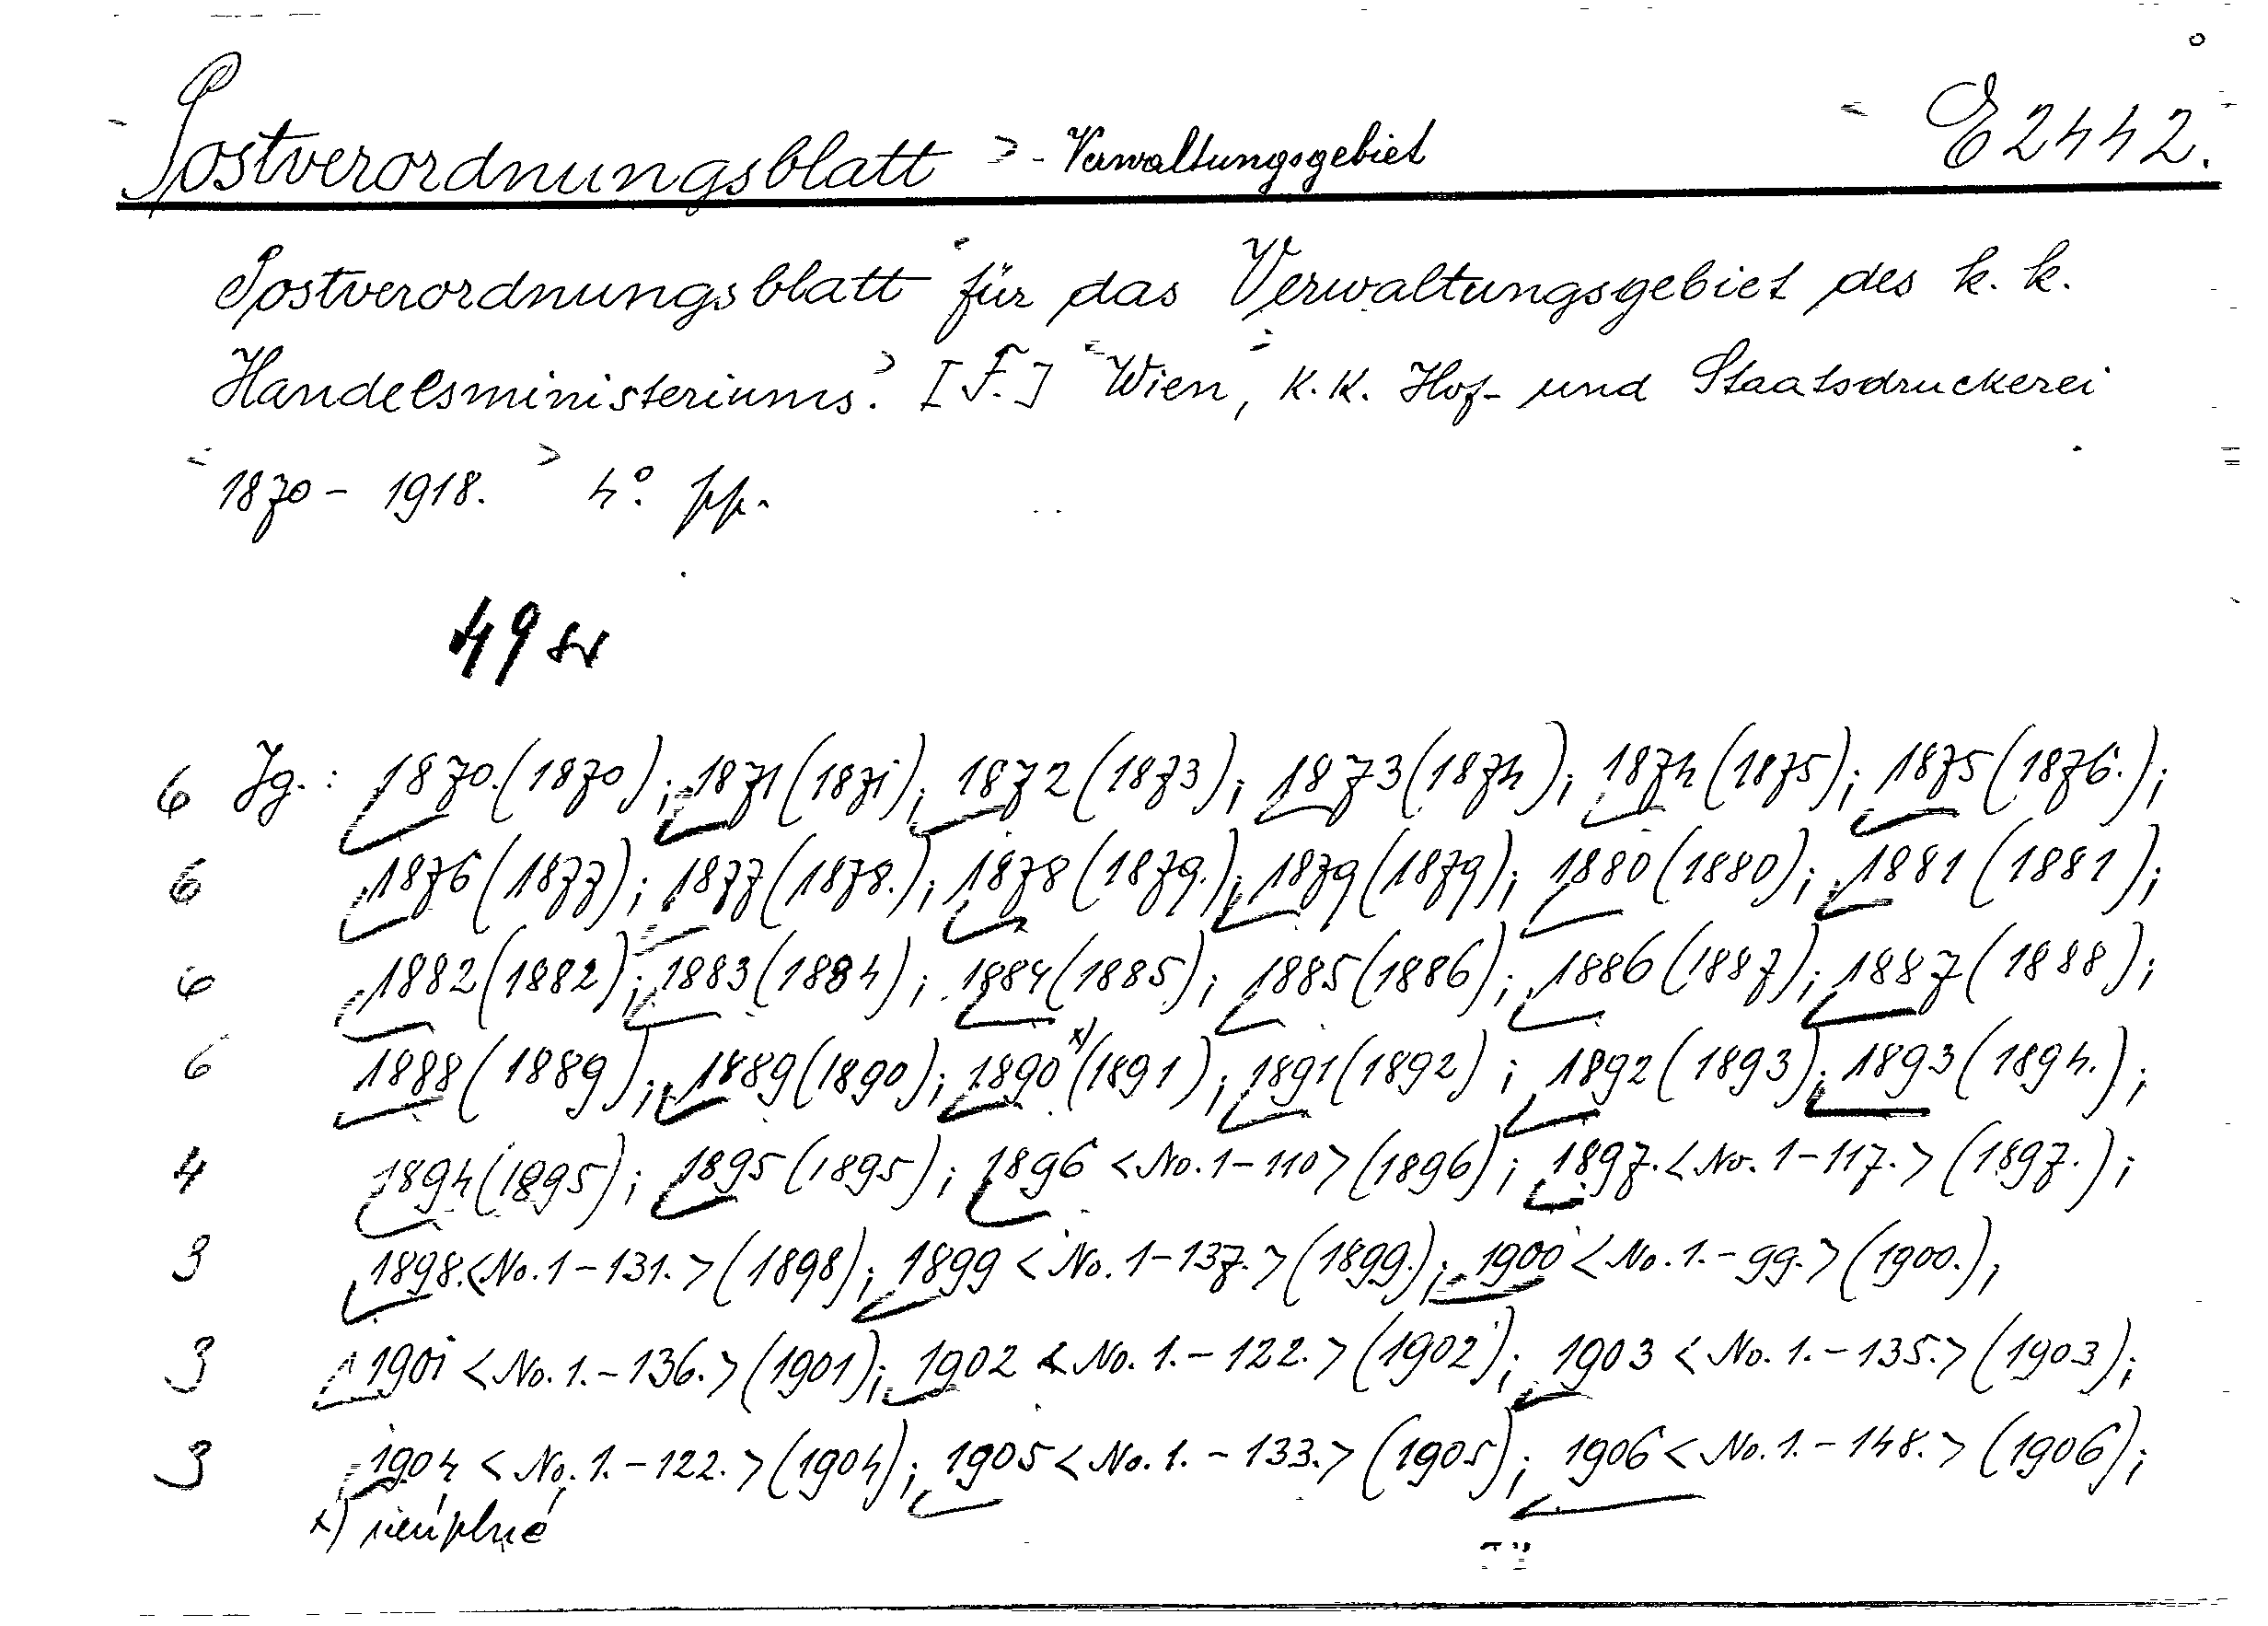 Postverordnungsblatt - Verwaltungsgebiet E 2442.
Postverordnungsblatt für das Verwaltungsgebiet des k. k.
Handelsministeriums. [F.] Wien, K. K. Hof- und Staatsdruckerei
1870 - 1918. 4°. pp.
49 sv
6 Jg.: 1870.(1870); 1871(1871); 1872(1873); 1873(1874); 1874(1875); 1875(1876.);
6 1876(1877); 1877(1878.); 1878(1879.); 1879(1879); 1880(1880); 1881(1881);
6 1882(1882); 1883(1884); 1884(1885); 1885(1886); 1886(1887); 1887(1888);
6 1888(1889); 1889(1890); 1890 x)(1891); 1891(1892); 1892(1893); 1893(1894.);
4 1894(1895); 1895(1895); 1896 <No. 1-110> (1896); 1897. <No. 1-117.> (1897.);
3 1898. <No. 1-131.> (1898); 1899 <No. 1-137.> (1899.); 1900 <No. 1.-99.> (1900.);
3 1901 <No. 1.-136.> (1901); 1902 <No. 1.-122.> (1902); 1903 <No. 1.-135.> (1903);
3 1904 <No. 1.-122.> (1904); 1905 <No. 1.-133.> (1905); 1906 <No. 1.-148.> (1906);
x) neúplné